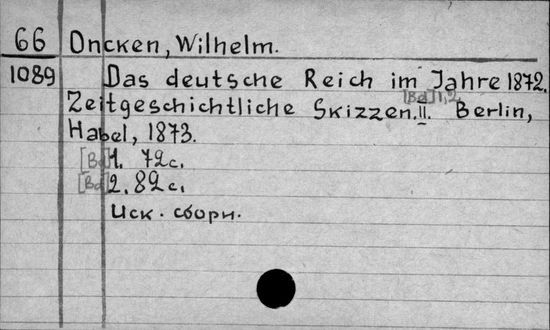 66 Oncken, Wilhelm.
1089 Das deutsche Reich im Jahre 1872.
Zeitgeschichtliche Skizzen. II. [Bd] 1, 2. Berlin,
Habel, 1873.
[Bd] 1. 72 с.
[Bd] 2. 82 с.
Иск. сборн.